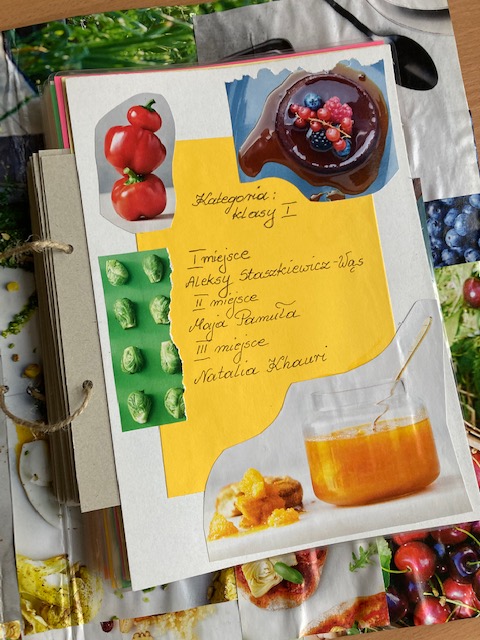 Kategoria:
klasy I
I miejsce
Aleksy Staszkiewicz-Wąs
II miejsce
Maja Pamuła
III miejsce
Natalia Khauri